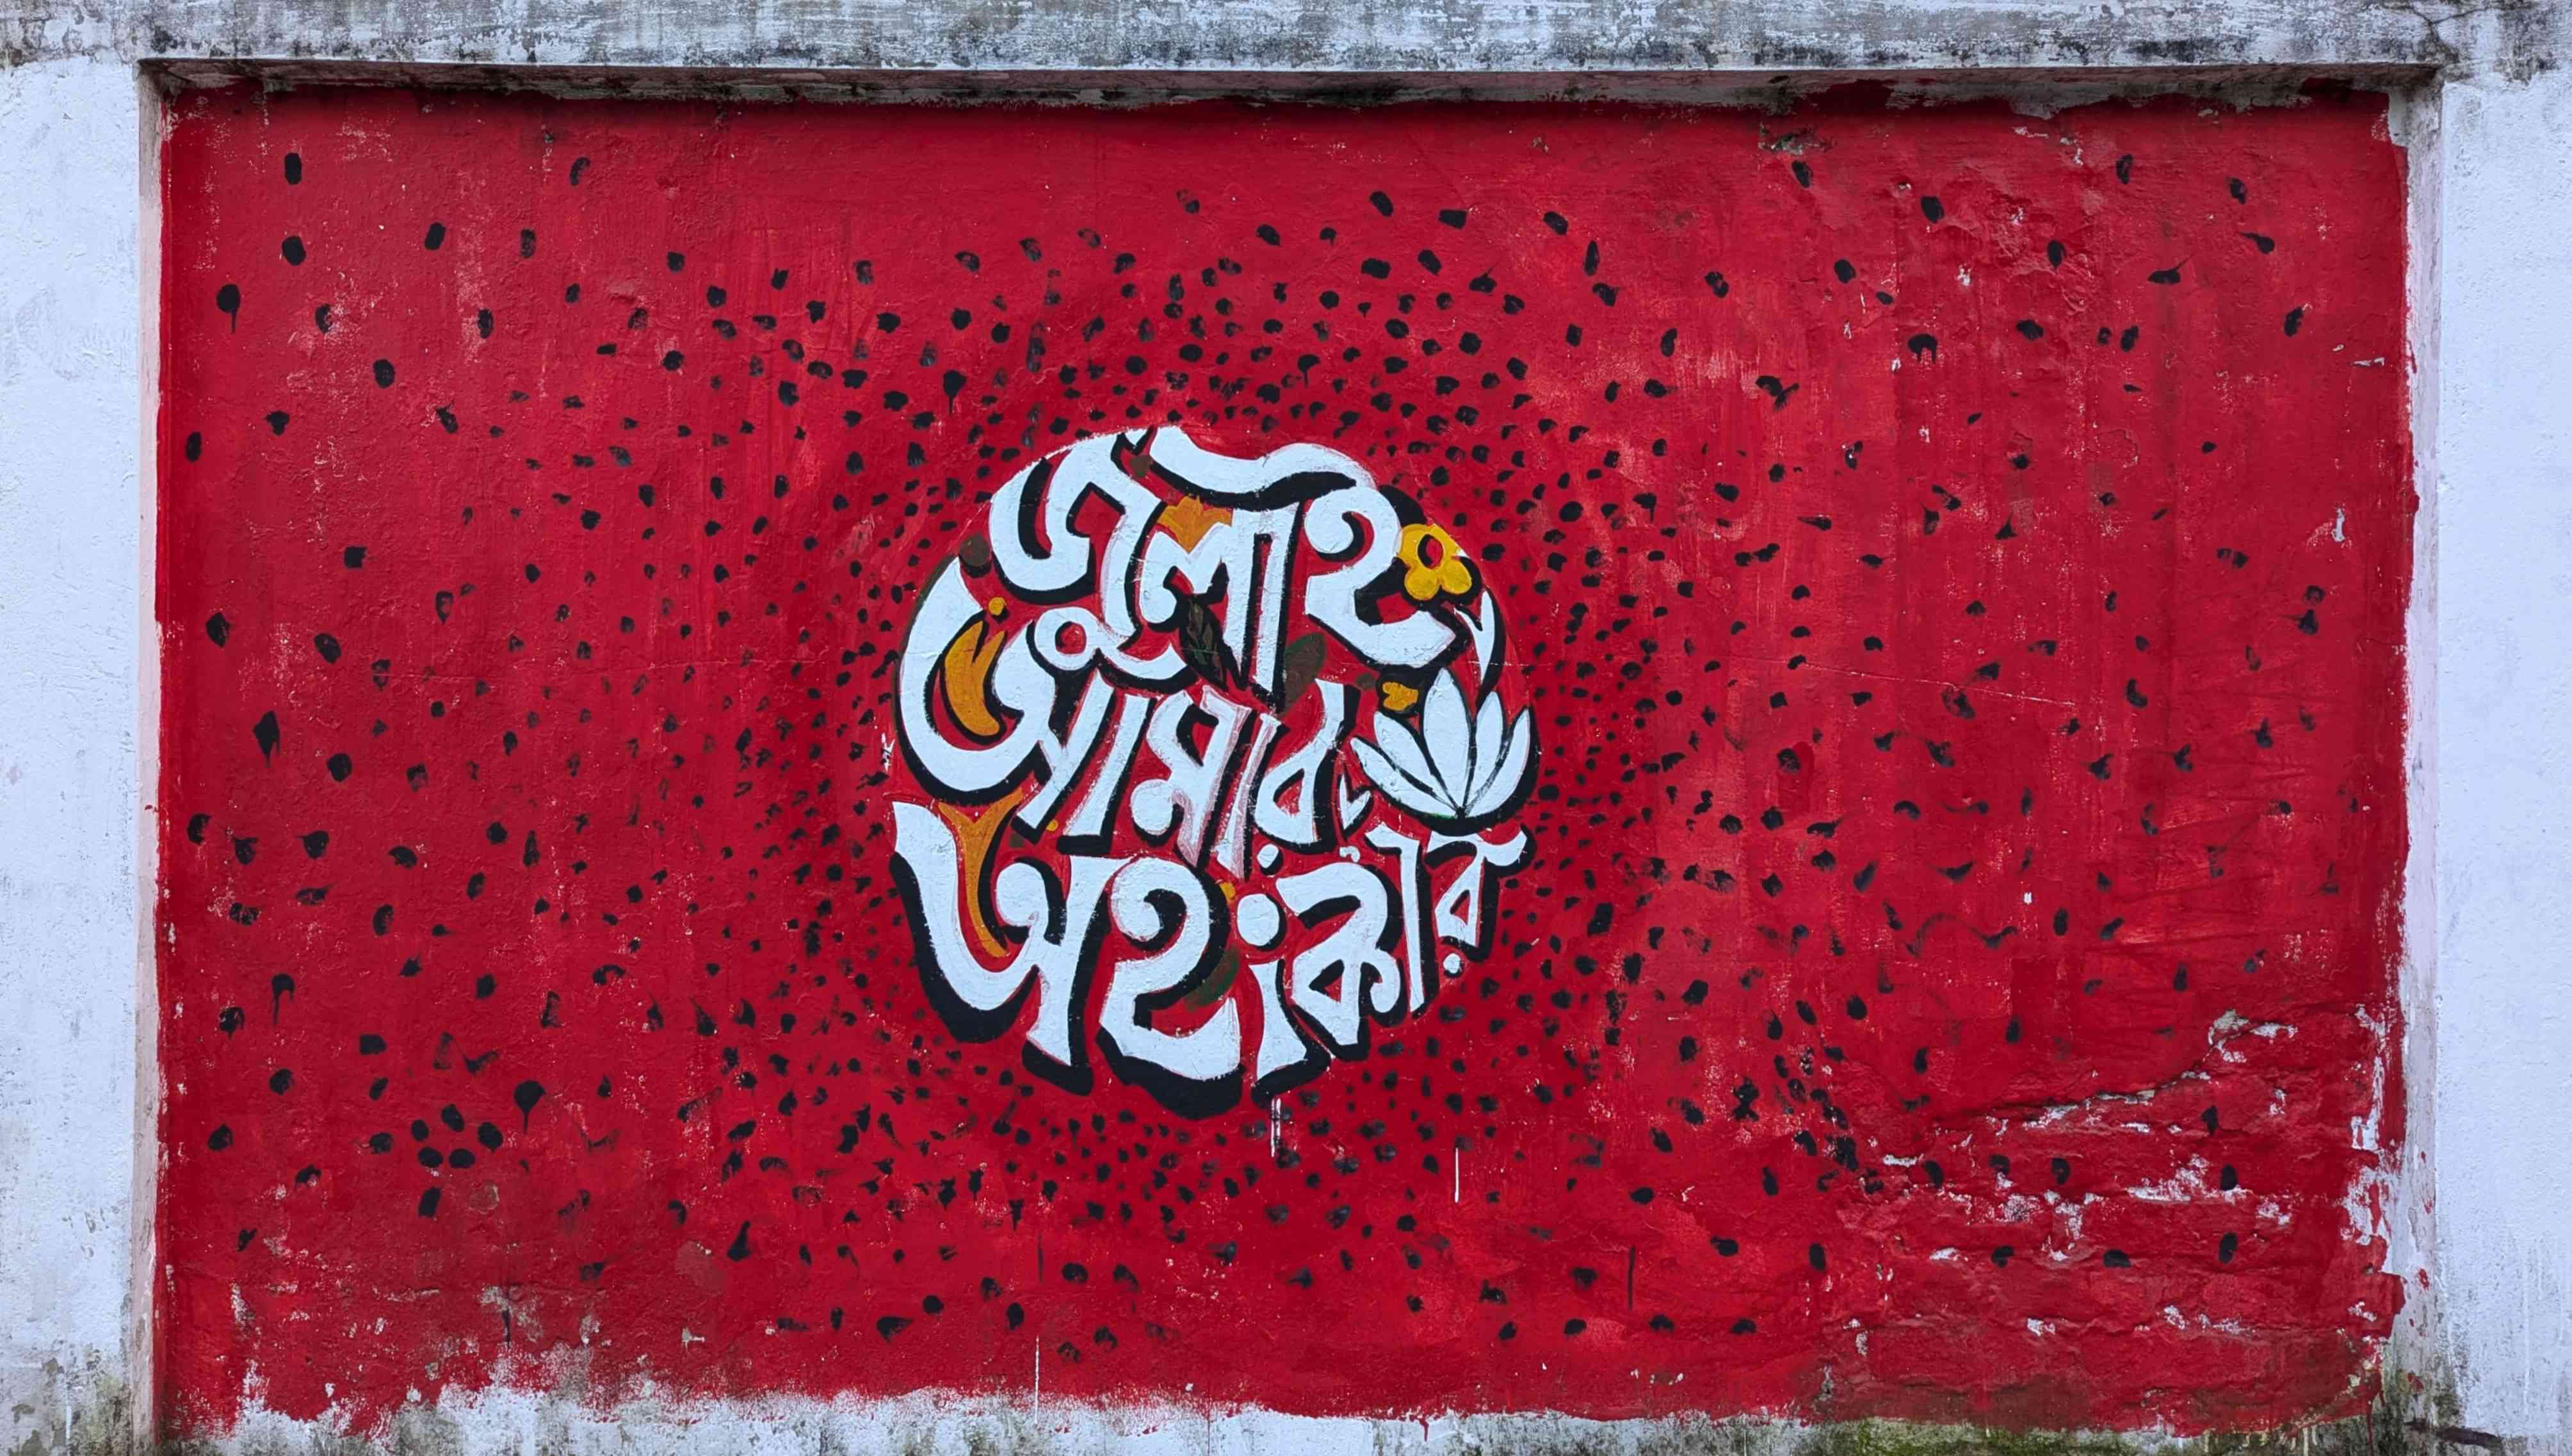 জুলাই
আমার
অহংকার